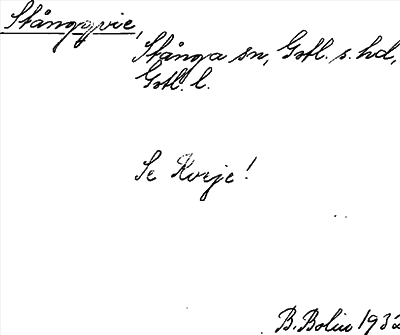 Stångqvie,
Stånga sn, Gotl. s. hd,
Gotl. l.
Se Kvie!
B. Bolin 1932